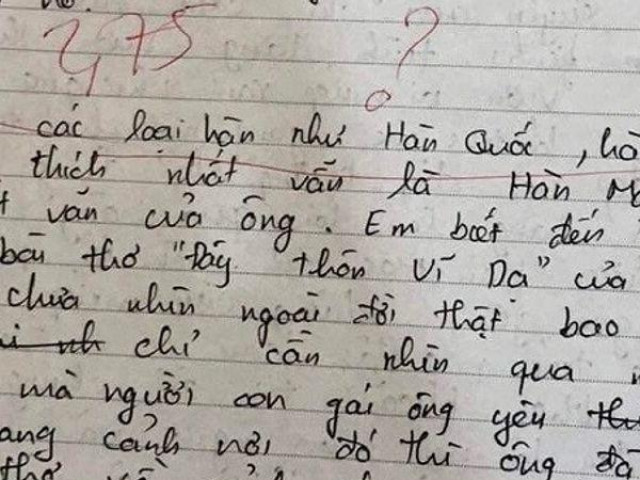 2,75 ?
các loại hận như Hàn Quốc, hò
thích nhất vẫn là Hàn M
văn của ông. Em biết đến
bài thơ "Đây thôn Vĩ Dạ" của
chưa nhìn ngoài đời thật bao
chỉ cần nhìn qua
mà người con gái ông yêu th
ang cảnh nơi đó thì ông đã
thơ